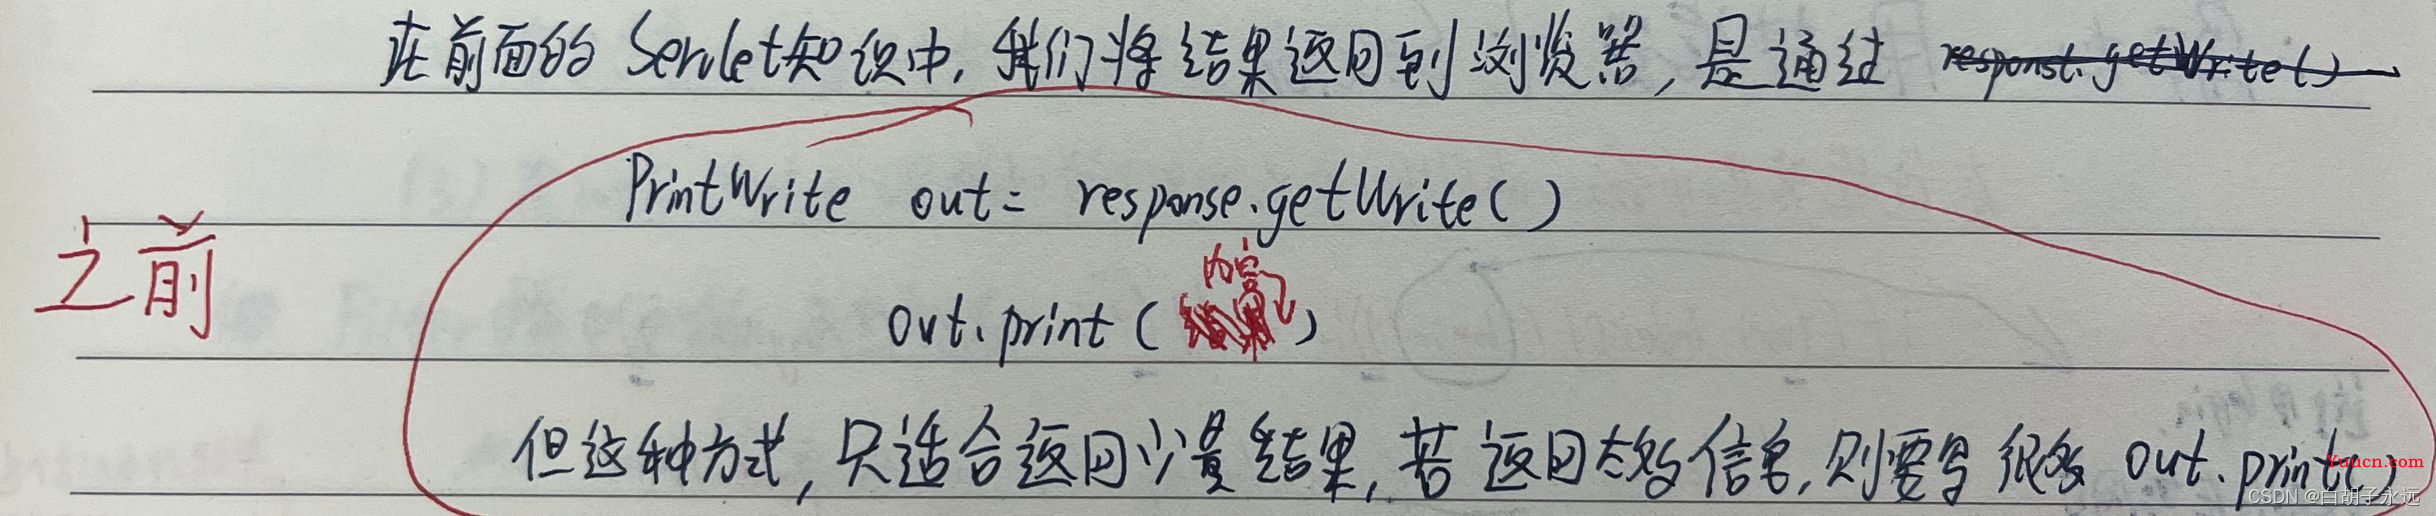 在前面的 Servlet知识中, 我们将结果返回到浏览器, 是通过 response.getWrite()
PrintWrite out= response.getWrite()
之前
内容
out.print( )
但这种方式, 只适合返回少量结果, 若返回太多信息, 则要写很多 out.print()
Yuucn.com
CSDN @白胡子永远